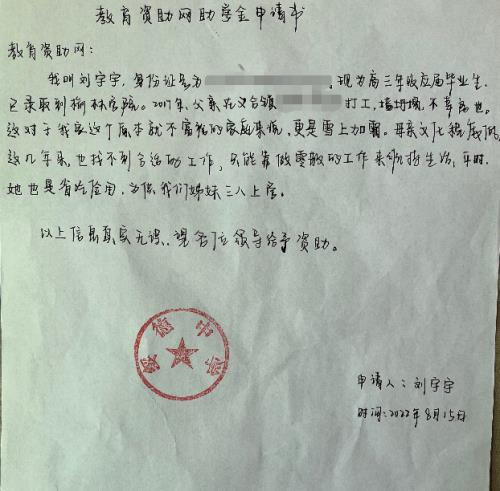 教育资助网助学金申请书
教育资助网：
我叫刘宇宇，身份证号为 现为高三年级应届毕业生，
已录取到榆林学院。2017年，父亲在义合镇 打工，墙坍塌，不幸离世。
这对于我家这个原本就不富裕的家庭来说，更是雪上加霜。母亲文化程度低，
这几年来也找不到合适的工作，只能靠做零散的工作来维持生活，平时
她也是省吃俭用，为供我们姊妹三人上学。
以上信息真实无误，望各位领导给予资助。
绥德中学
申请人：刘宇宇
时间：2022年8月15日